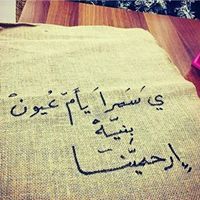 ي سَمرا يا أمّ عيونْ
بنيّهْ
إرحمينا